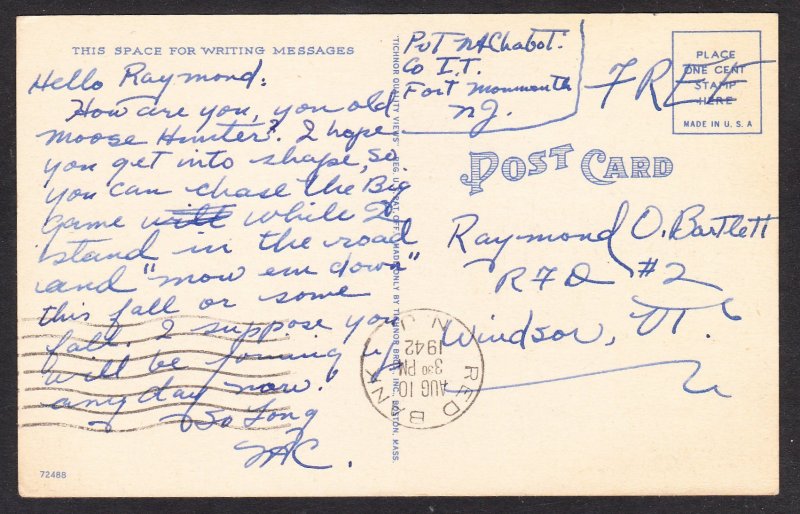 THIS SPACE FOR WRITING MESSAGES
Hello Raymond:
How are you, you old
moose Hunter? I hope
you get into shape, so
you can chase the Big
Game will while I
stand in the road
and "mow em down"
this fall or some
fall. I suppose you
will be joining up
any day now.
So Long
NAC.
72488
TICHNOR QUALITY VIEWS REG. U. S. PAT. OFF. MADE ONLY BY TICHNOR BROS., INC., BOSTON, MASS.
Pvt NAChabot.
Co I.T.
Fort Monmouth
NJ.
FREE
PLACE
ONE CENT
STAMP
HERE
MADE IN U. S. A
POST CARD
Raymond O. Bartlett
RFD #2
Windsor, VT.
RED BANK N.J.
AUG 10
3 30 PM
1942